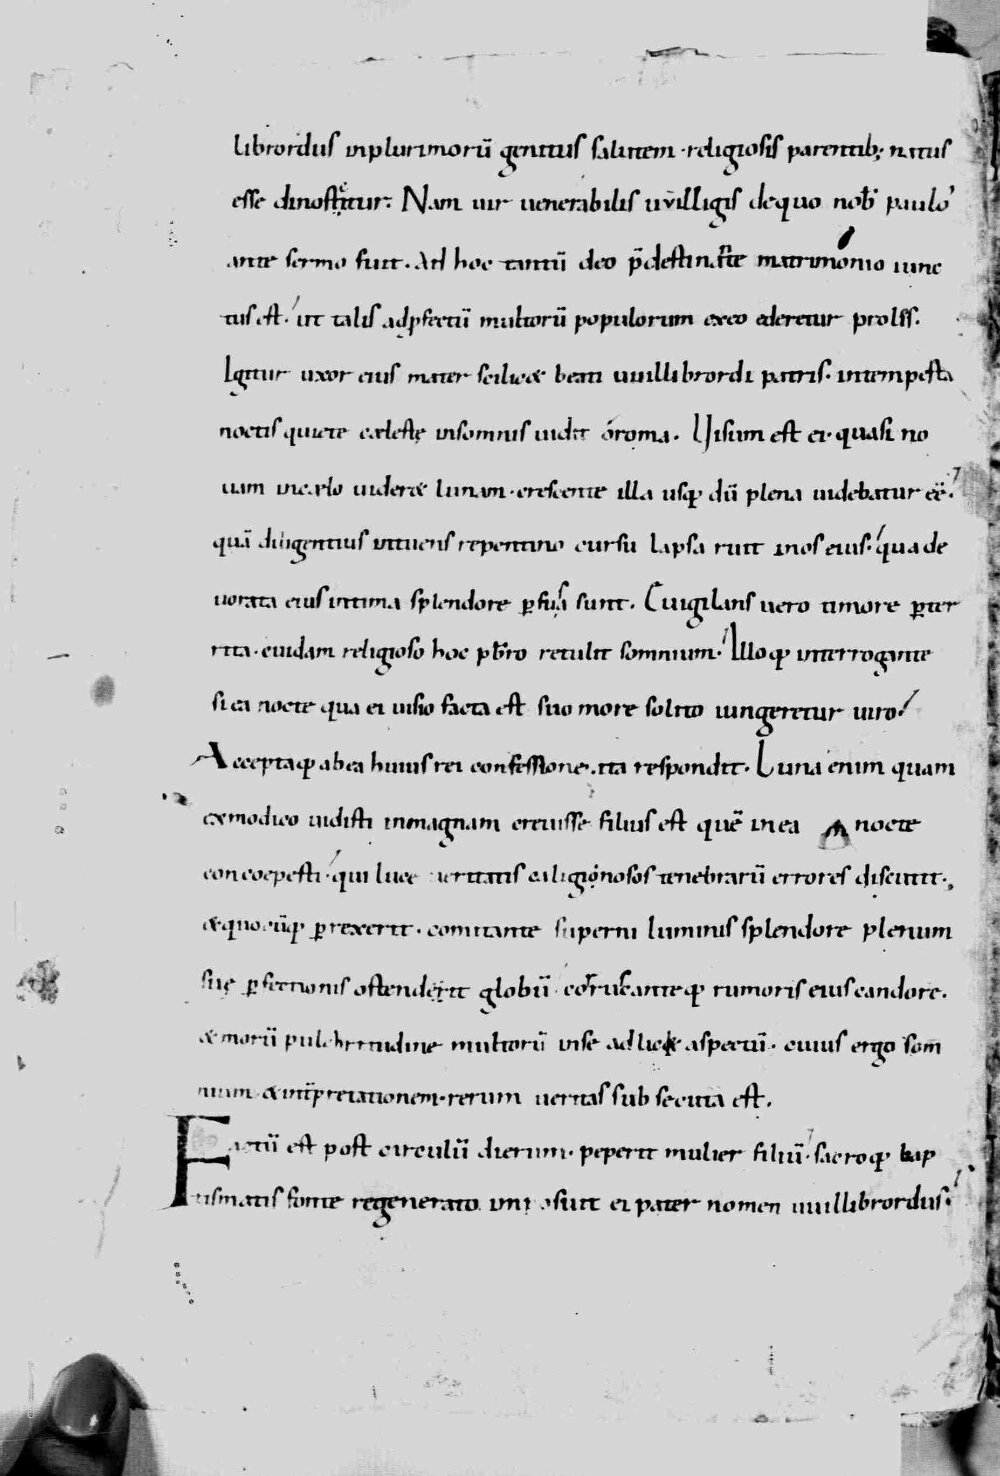 librordus inplurimorū genitus salutem · religiosis parentib; natus
esse dinoscitur. Nam uir uenerabilis uuilligis dequo nob paulo
ante sermo fuit. Ad hoc tantū deo p̄destinante matrimonio iunc
tus est. ut talis adpfectū multorū populorum exeo ederetur proles.
Igitur uxor eius mater scilic& beati uuillibrordi patris. intempesta
noctis quiete cęlestę insomnis uidit óroma. Uisum est ei · quasi no
uam incęlo uider& lunam · crescente illa usq; dū plena uidebatur eē.
quā diligentius intuens repentino cursu lapsa ruit inos eius. qua de
uorata eius intima splendore pfusa sunt. Euigilans uero timore pter
rita · cuidam religioso hoc pbro retulit somnium. Illoq; interrogante
si ea nocte qua ei uisio facta est suo more solito iungeretur uiro.
Acceptaq; abea huius rei confessione. ita respondit. Luna enim quam
exmodico uidisti inmagnam creuisse filius est quē inea nocte
concoepesti. qui luce ueritatis caliginosos tenebrarū errores discutit.
&quocūq; prexerit. comitante superni luminis splendore plenum
suę pfectionis ostenderit globū. coruscanteq; rumoris eius candore.
& morū pulchritudine multorū inse adlic& aspectū. cuius ergo som
nium &intpretationem · rerum ueritas subsecuta est.
Factū est post circulū dierum · peperit mulier filiū. sacroq; bap
tismatis fonte regenerato inposuit ei pater nomen uuillibrordus.